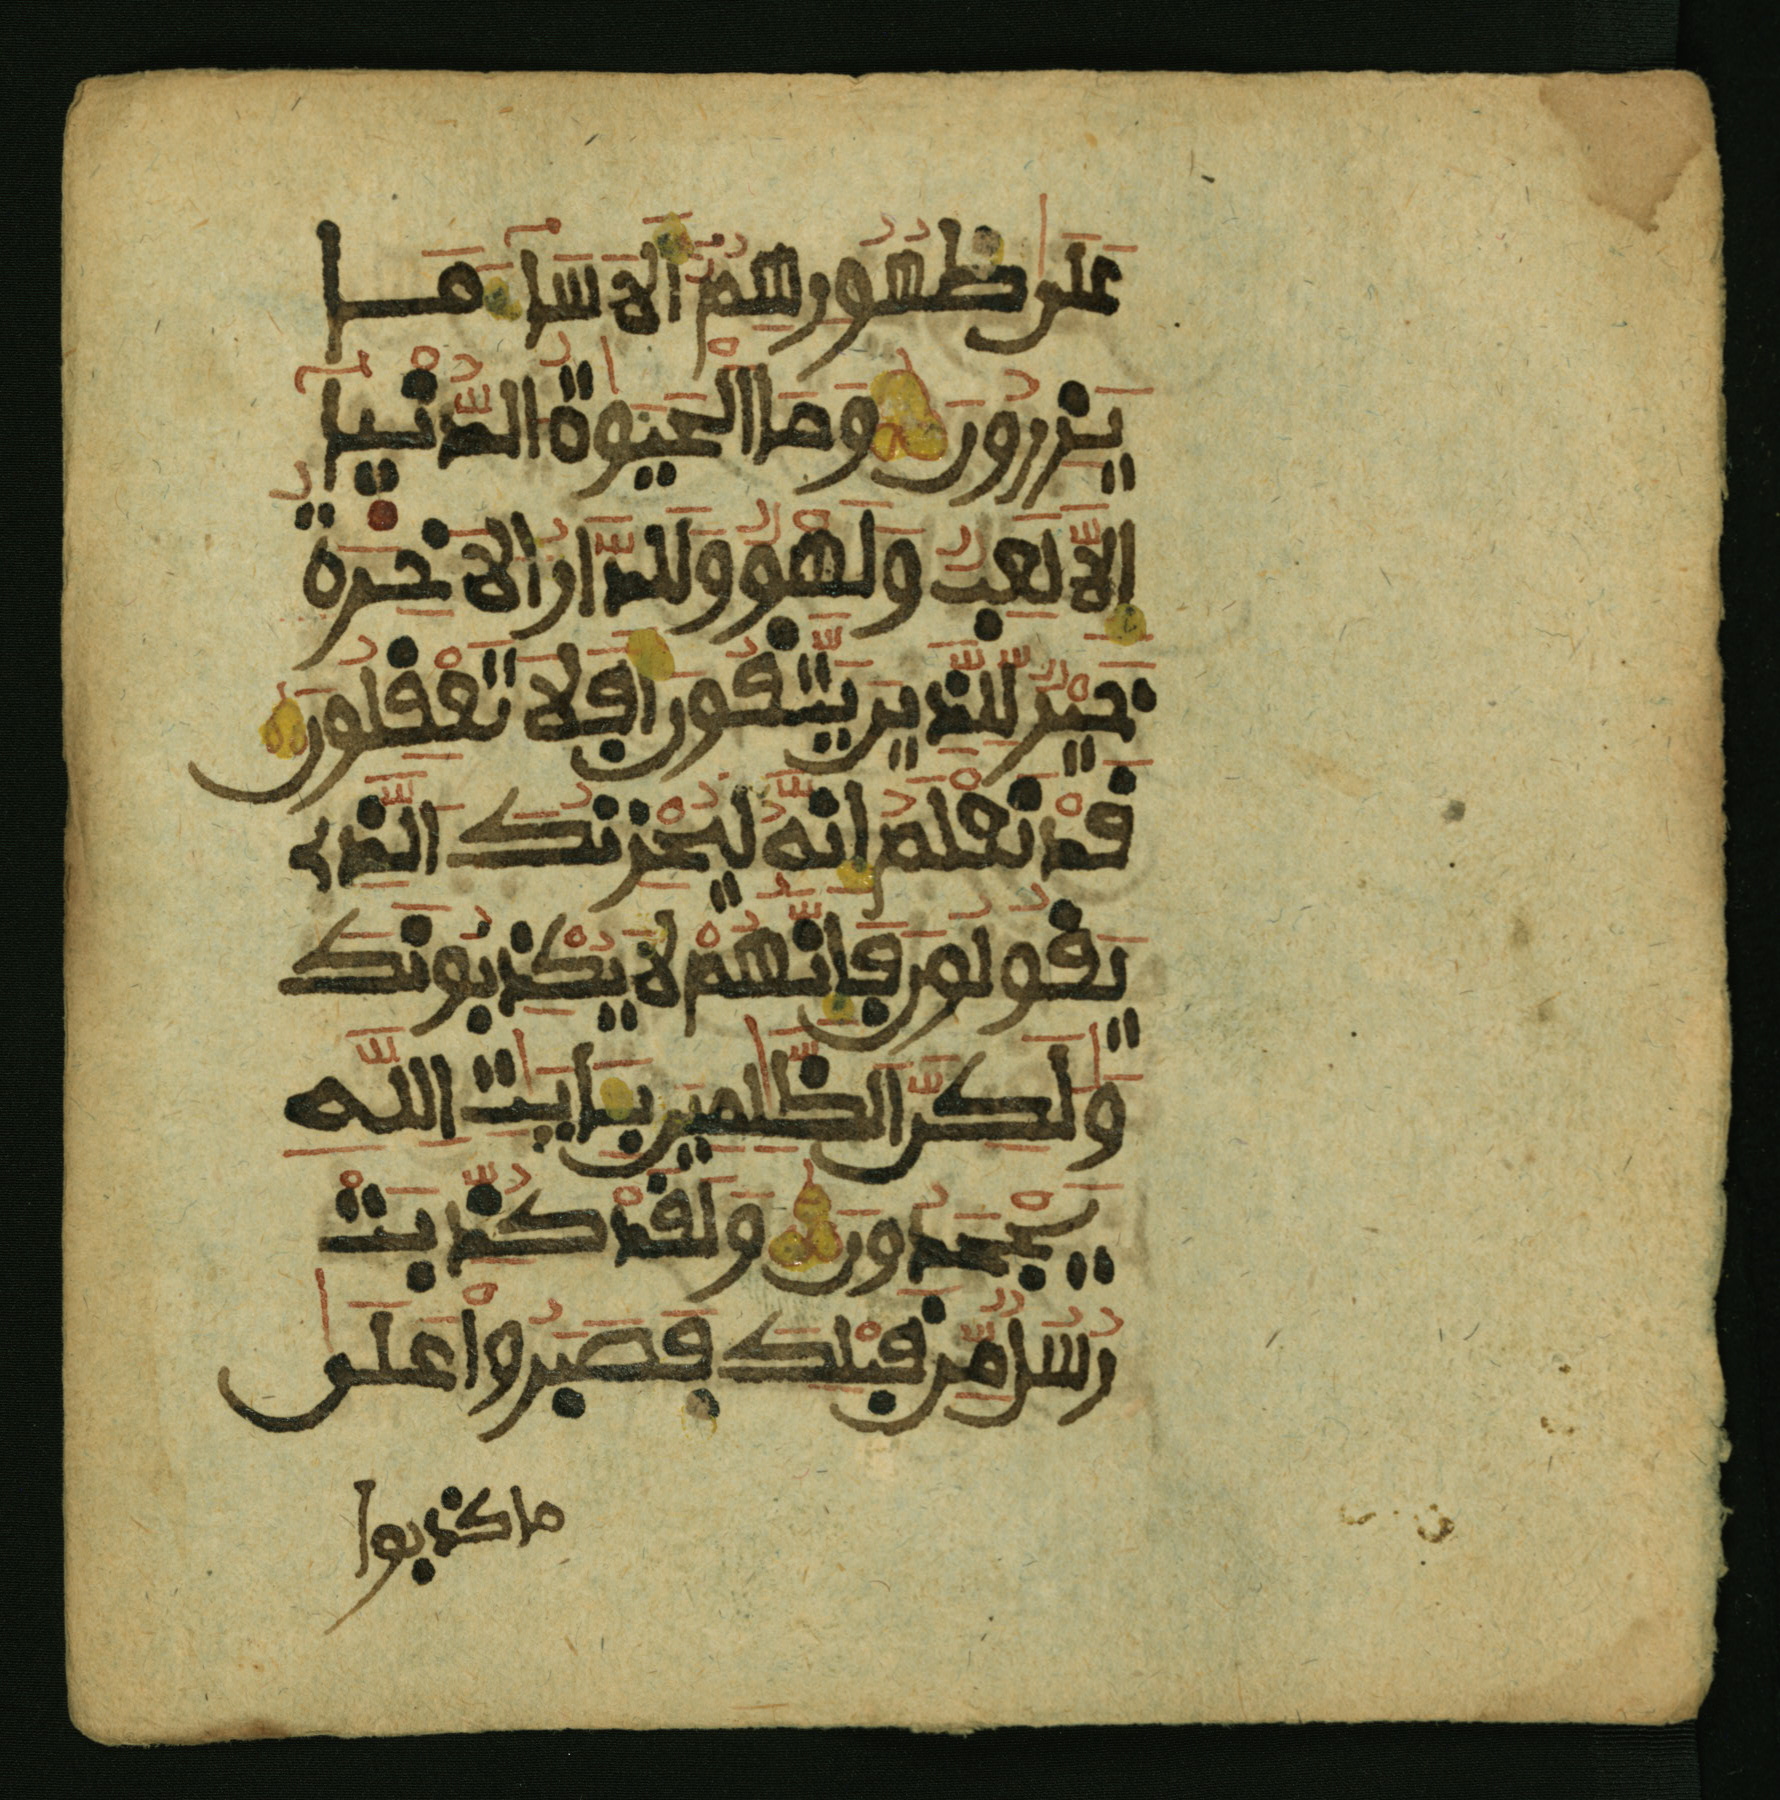 عَلَىٰ ظُهُورِهِمُ أَلَا سَآءَ مَا
يَزِرُونَ وَمَا الْحَيَوٰةُ الدُّنْيَآ
إِلَّا لَعِبٌ وَلَهْوٌ وَلَلدَّارُ الْأَخِرَةُ
خَيْرٌ لِّلَّذِينَ يَتَّقُونَ أَفَلَا تَعْقِلُونَ
قَدْ نَعْلَمُ إِنَّهُ لَيُحْزِنُكَ الَّذِي
يَقُولُونَ فَإِنَّهُمْ لَا يُكْذِبُونَكَ
وَلَٰكِنَّ الظَّٰلِمِينَ بِـَٔايَٰتِ اللَّهِ
يَجْحَدُونَ وَلَقَدْ كُذِّبَتْ
رُسُلٌ مِّن قَبْلِكَ فَصَبَرُوا عَلَىٰ
ما كذبوا